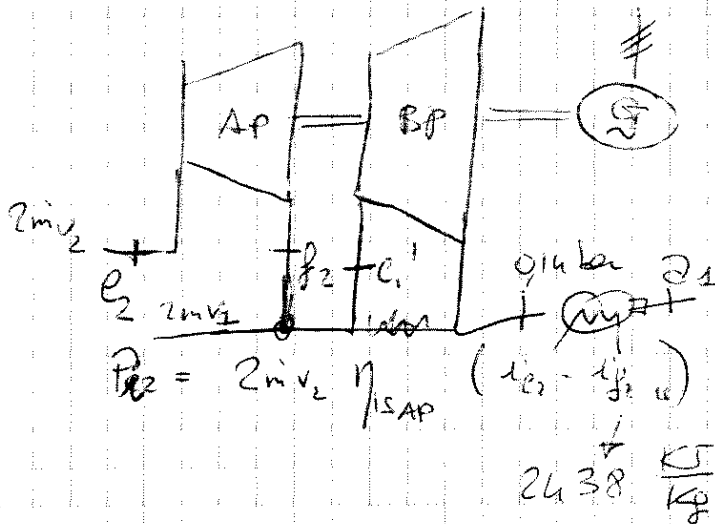 AP
BP
2ṁv₂
e₂
f₂
e₁'
2ṁv₁
a₁
= 2ṁv₂ η_ISAP (i_e₂ - i_f₂ is)
2438 KJ/Kg